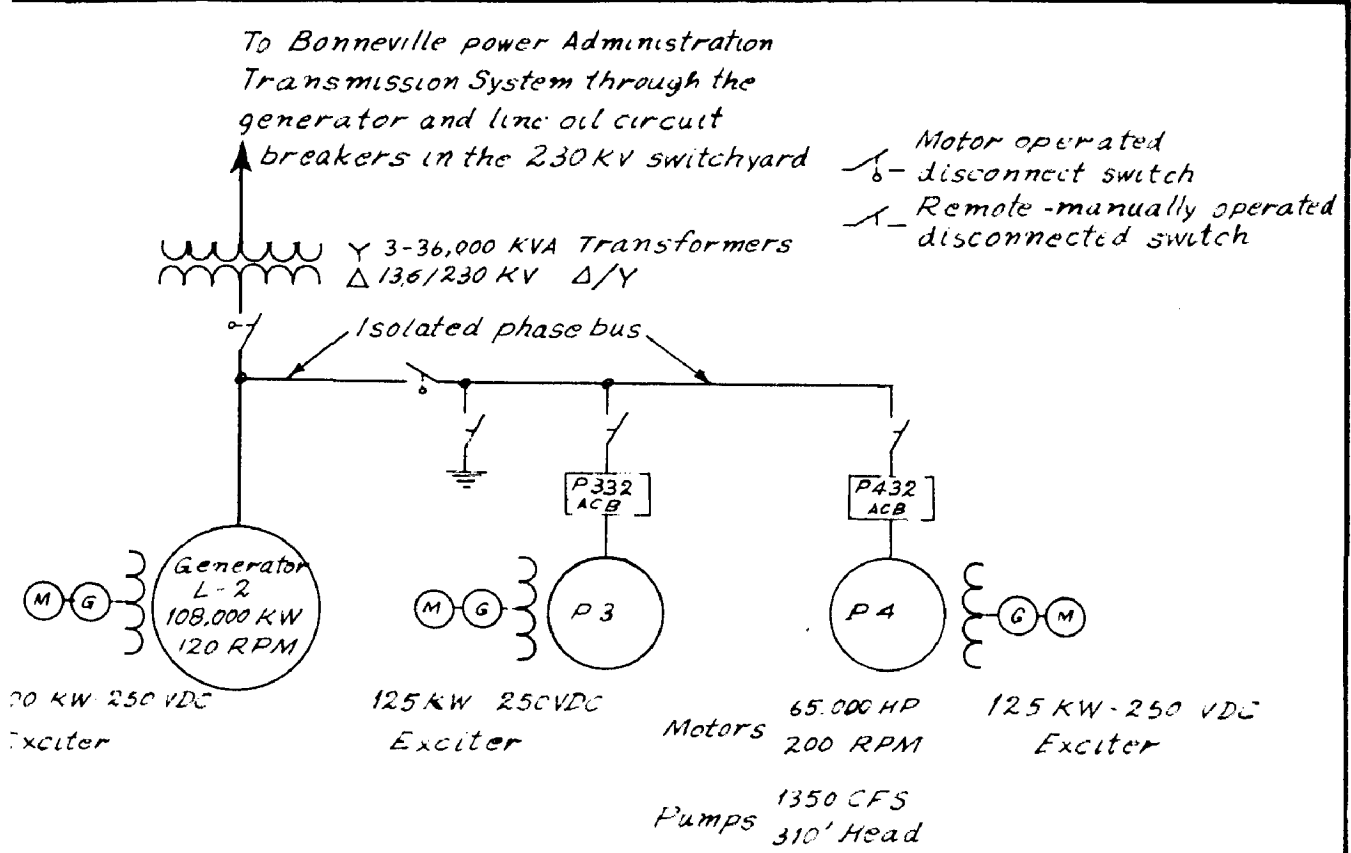 To Bonneville power Administration
Transmission System through the
generator and line oil circuit
breakers in the 230 KV switchyard
Motor operated
disconnect switch
Remote-manually operated
disconnected switch
Y 3-36,000 KVA Transformers
Δ 13.6/230 KV Δ/Y
Isolated phase bus
P332
ACB
P432
ACB
Generator
L-2
108,000 KW
120 RPM
M G
M G
P3
P4
G M
00 KW-250 VDC
Exciter
125 KW 250VDC
Exciter
Motors
65.000 HP
200 RPM
125 KW-250 VDC
Exciter
Pumps
1350 CFS
310' Head